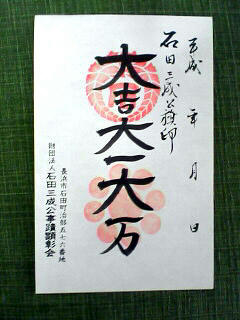 平成　年　月　日
石田三成公旗印
大吉大一大万
長浜市石田町治部五七六番地
財団法人石田三成公事蹟顕彰会